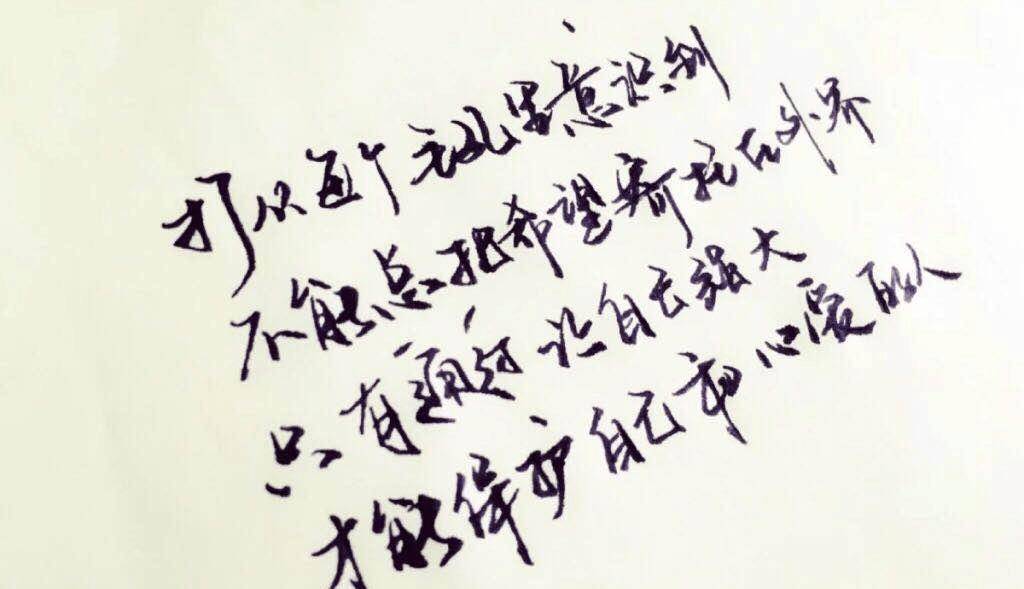 打从个意识到
不能总把希望寄托在外界
只有通过让自己强大
才能保护自己和心爱的人